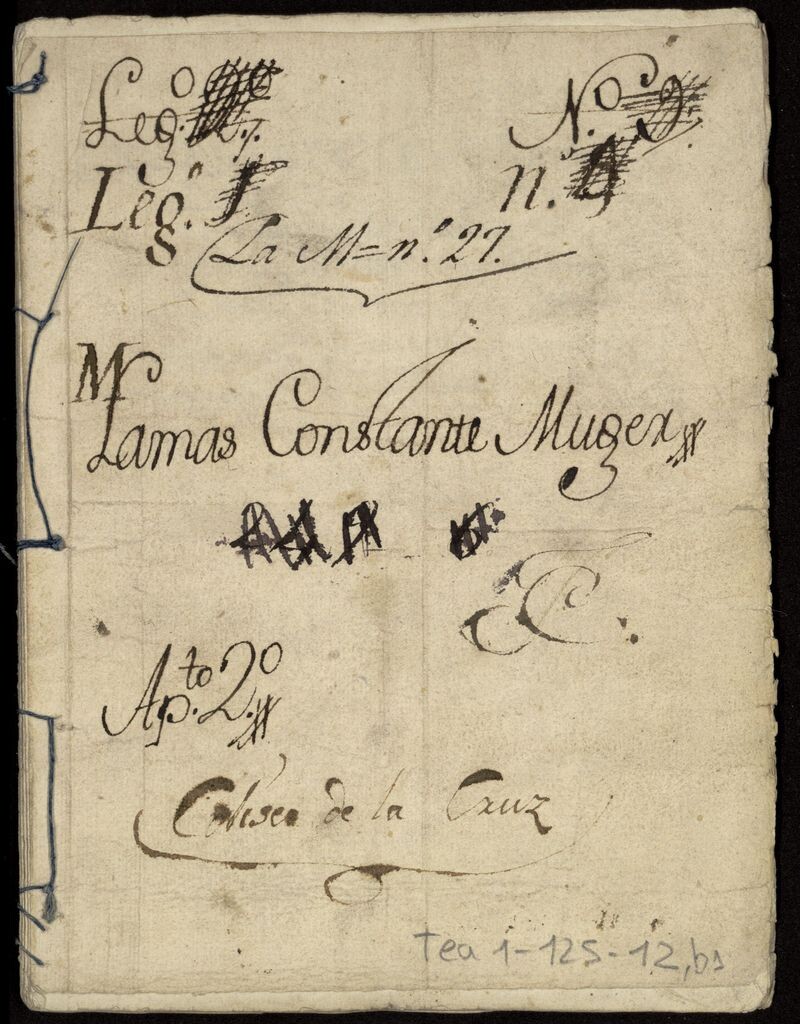 Leg.º 27. N.º 9.
Leg.º 1 n.º 5
La M= n.º 27.
M
Lamas Constante Muger
T C.
Ap.to 2.º
Coliseo de la Cruz
Tea 1-125-12, b1